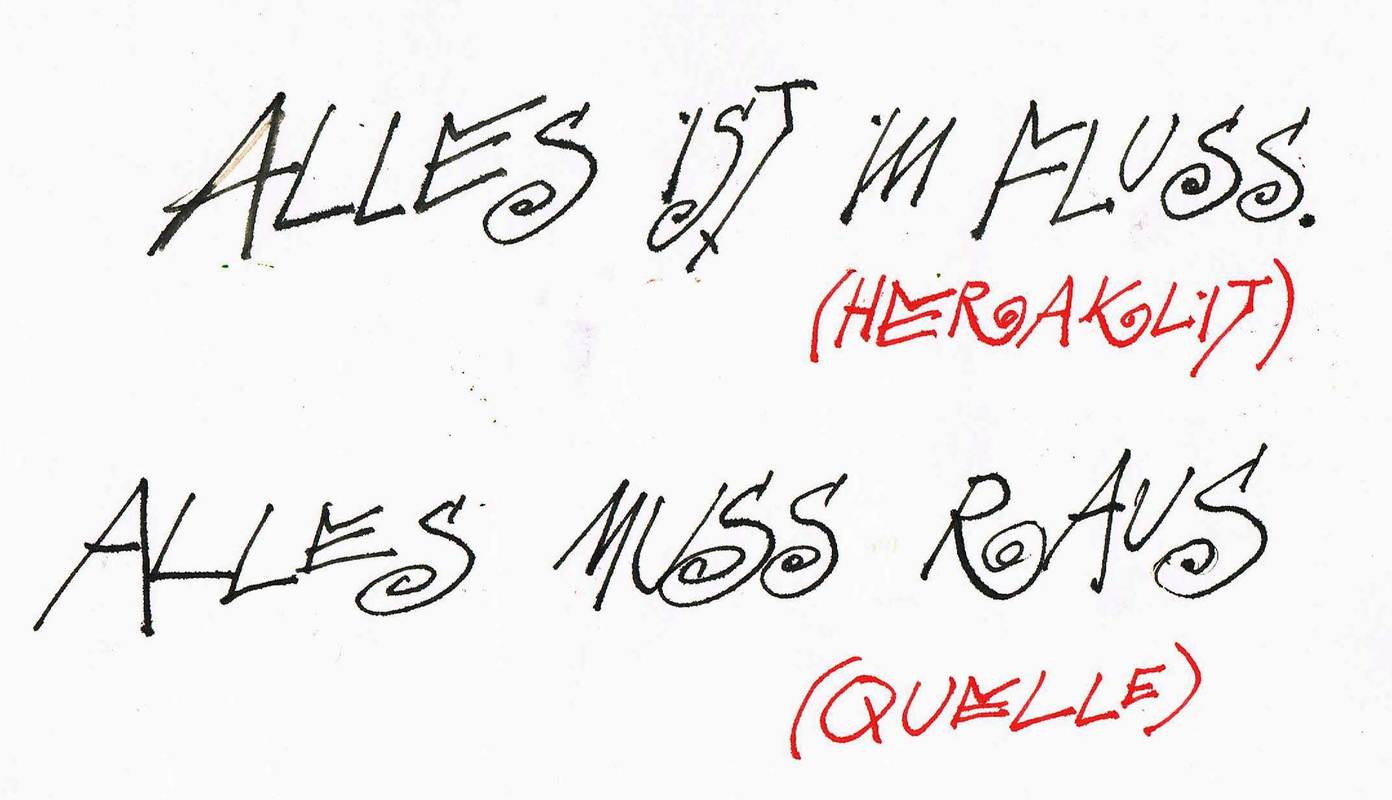 ALLES IST IM FLUSS.
(HERAKLIT)
ALLES MUSS RAUS
(QUELLE)